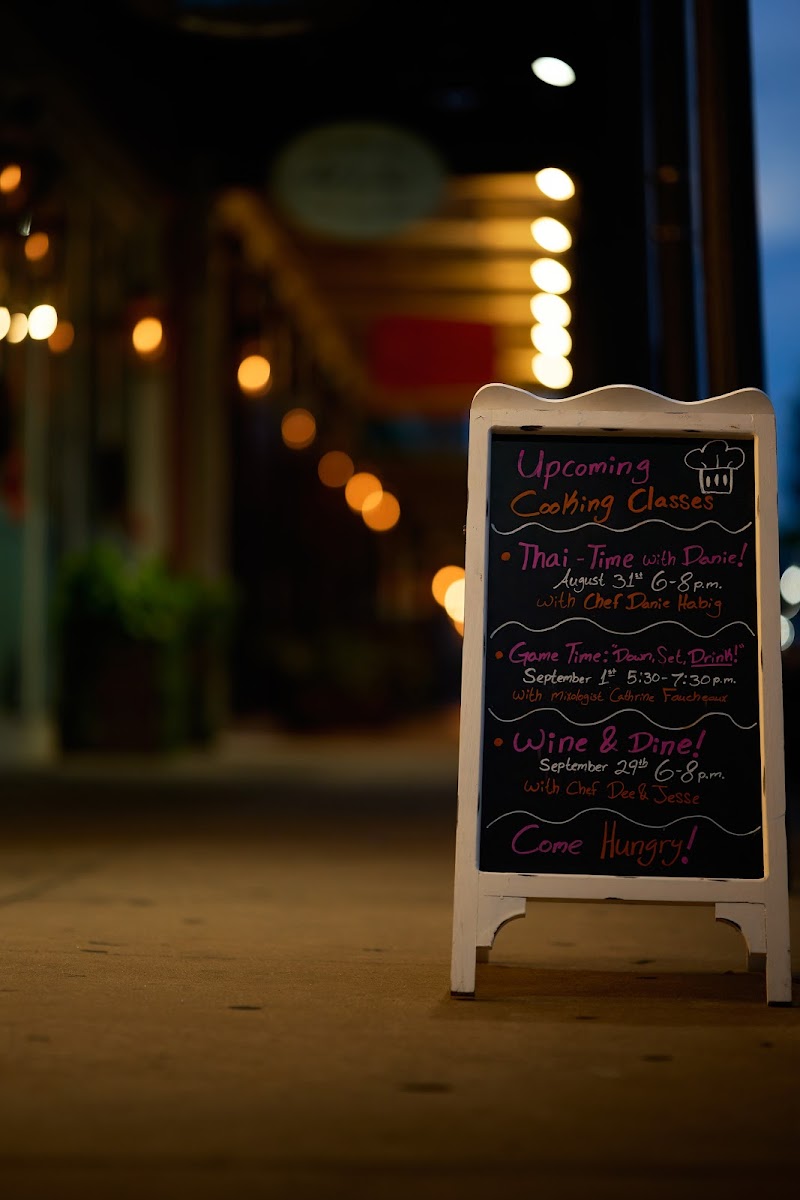 Upcoming
Cooking Classes
Thai-Time with Danie!
August 31st 6-8p.m.
with Chef Danie Habig
Game Time: "Down, Set, Drink!"
September 1st 5:30-7:30p.m.
with Mixologist Cathrine Foucheaux
Wine & Dine!
September 29th 6-8p.m.
with Chef Dee & Jesse
Come Hungry!